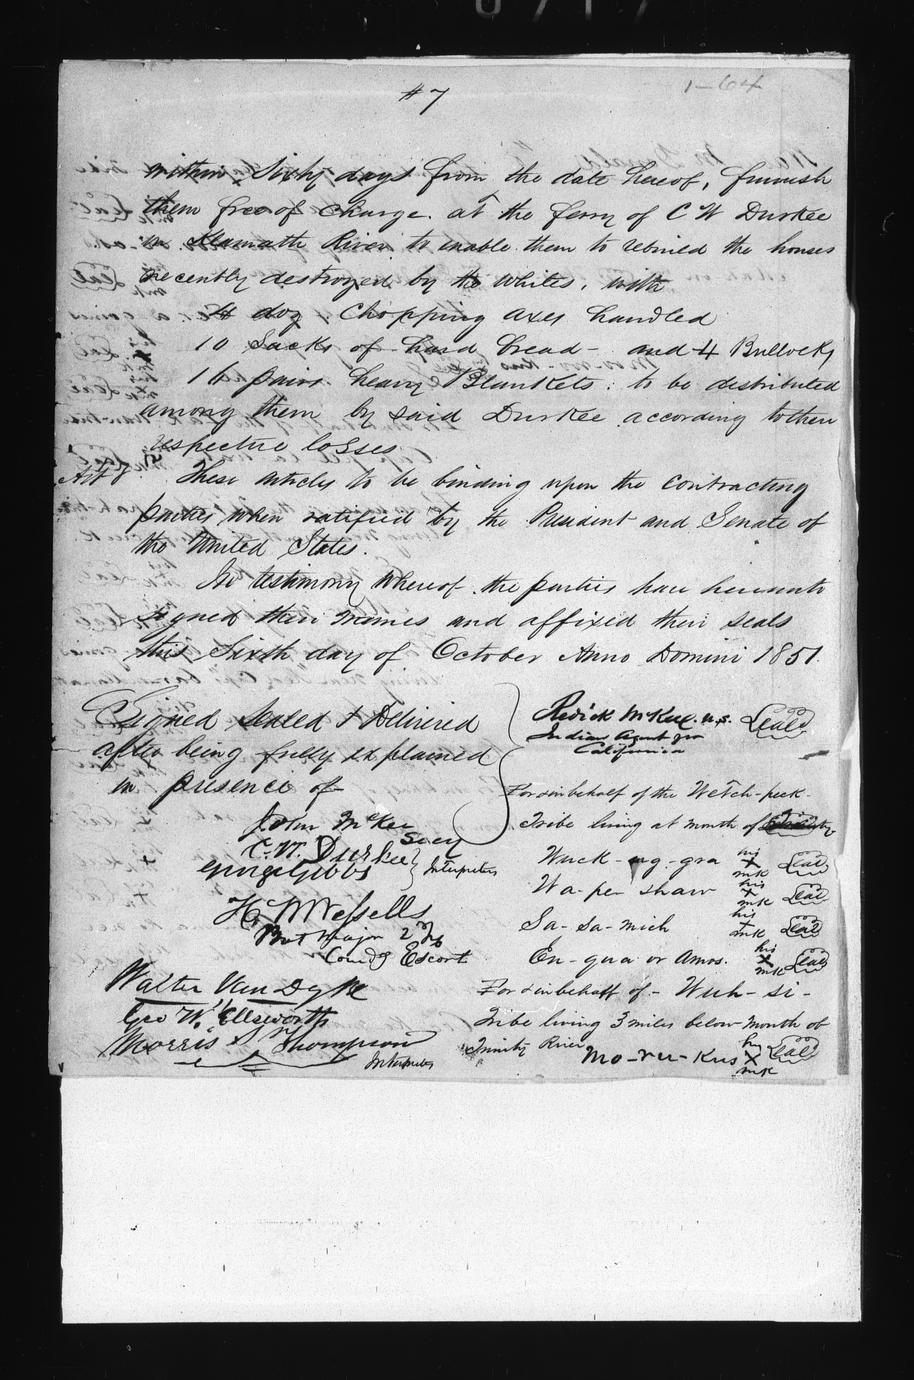 #7
1-64
within Sixty days from the date hereof, furnish
them free of charge. at the ferry of C W Durkee
in Klamath River to enable them to rebuild the houses
recently destroyed by the Whites, with
4 doz Chopping axes handled
10 Sacks of hard bread - and 4 Bullocks
16 pairs heavy Blankets: to be distributed
among them by said Durkee according to their
respective losses
Art 8. These articles to be binding upon the contracting
parties when ratified by the President and Senate of
the United States.
In testimony Whereof the parties have hereunto
signed their names and affixed their seals
this Sixth day of October Anno Domini 1851.
Signed Sealed & Delivered
after being fully explained
in presence of
John McKee Secy
C. W. Durkee
George Gibbs } Interpreters
H. W. Wessells
Bvt Major 2d Inf
Comdg Escort
Walter Van Dyke
Geo W. Ellsworth
Morris S. Thompson
Interpreter
Redick McKee. U.S. Seal
Indian Agent for
California
For & in behalf of the Wetch-peck
Tribe living at mouth of Trinity
Wuck-ug-gra his x mk Seal
Wa-per-shaw his x mk Seal
Sa-sa-mich his x mk Seal
En-qua or Amos. his x mk Seal
For & in behalf of - Wuh-si-
Tribe living 3 miles below mouth of
Trinity River
Mo-ru-kus his x mk Seal